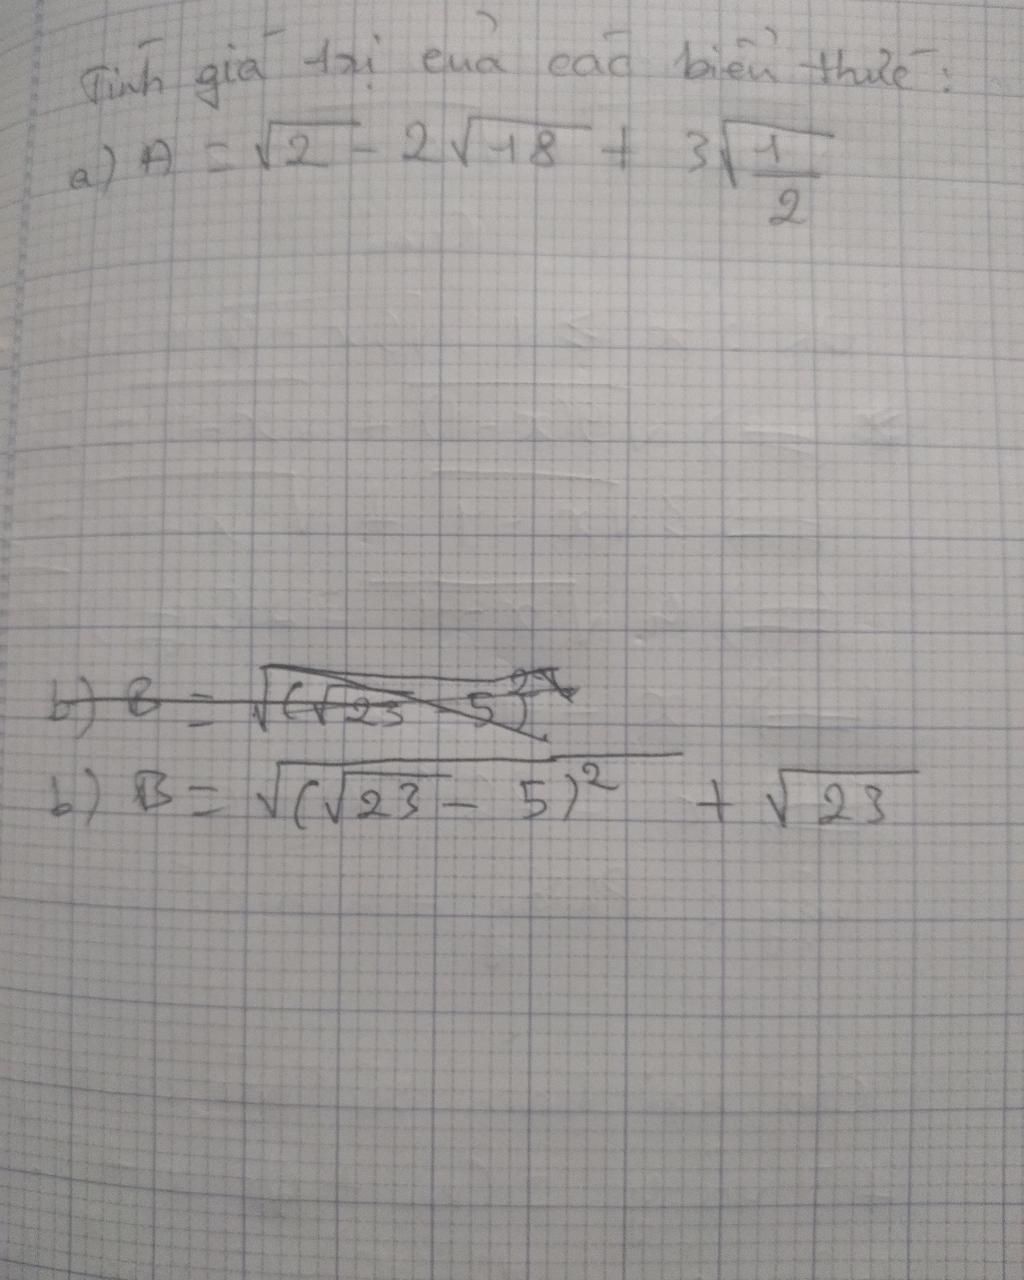 Tính giá trị của các biểu thức:
a) A = √2 - 2√18 + 3√(1/2)
b) B = √((√23 - 5)²
b) B = √((√23 - 5)²) + √23